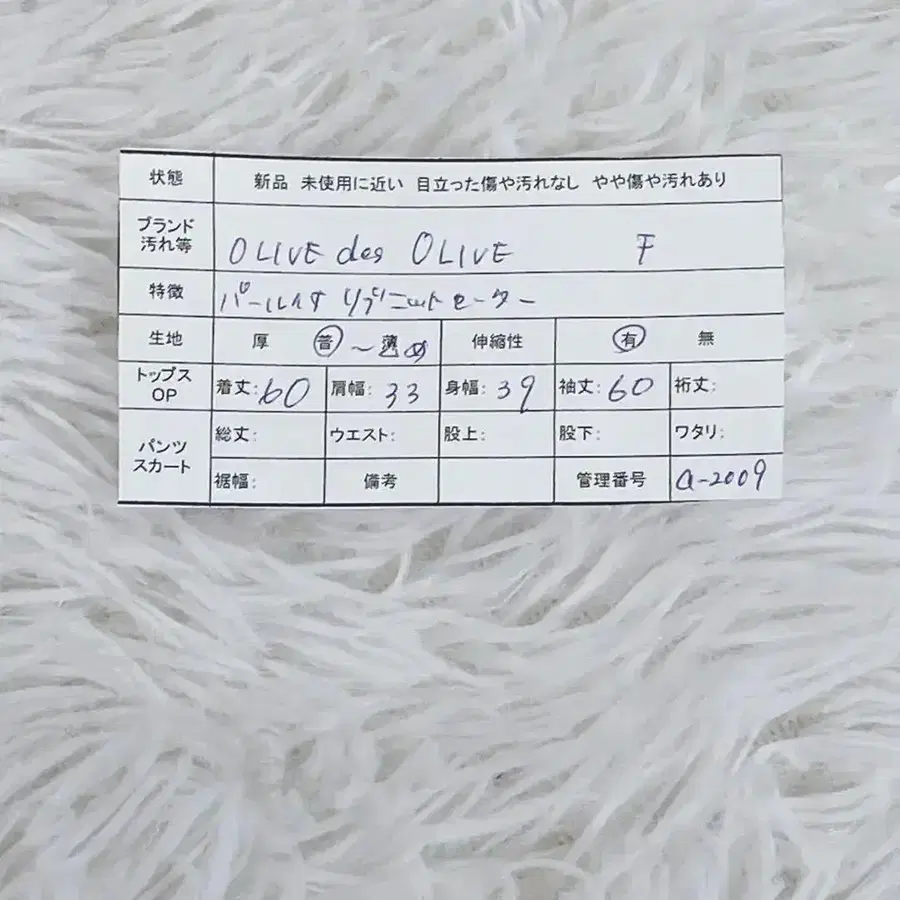 状態 新品 未使用に近い 目立った傷や汚れなし やや傷や汚れあり
ブランド
汚れ等 OLIVE des OLIVE F
特徴 パール付 リブニットセーター
生地 厚 普 〜 薄め 伸縮性 有 無
トップス
OP 着丈: 60 肩幅: 33 身幅: 39 袖丈: 60 裄丈:
パンツ
スカート 総丈: ウエスト: 股上: 股下: ワタリ:
裾幅: 備考 管理番号 a-2009